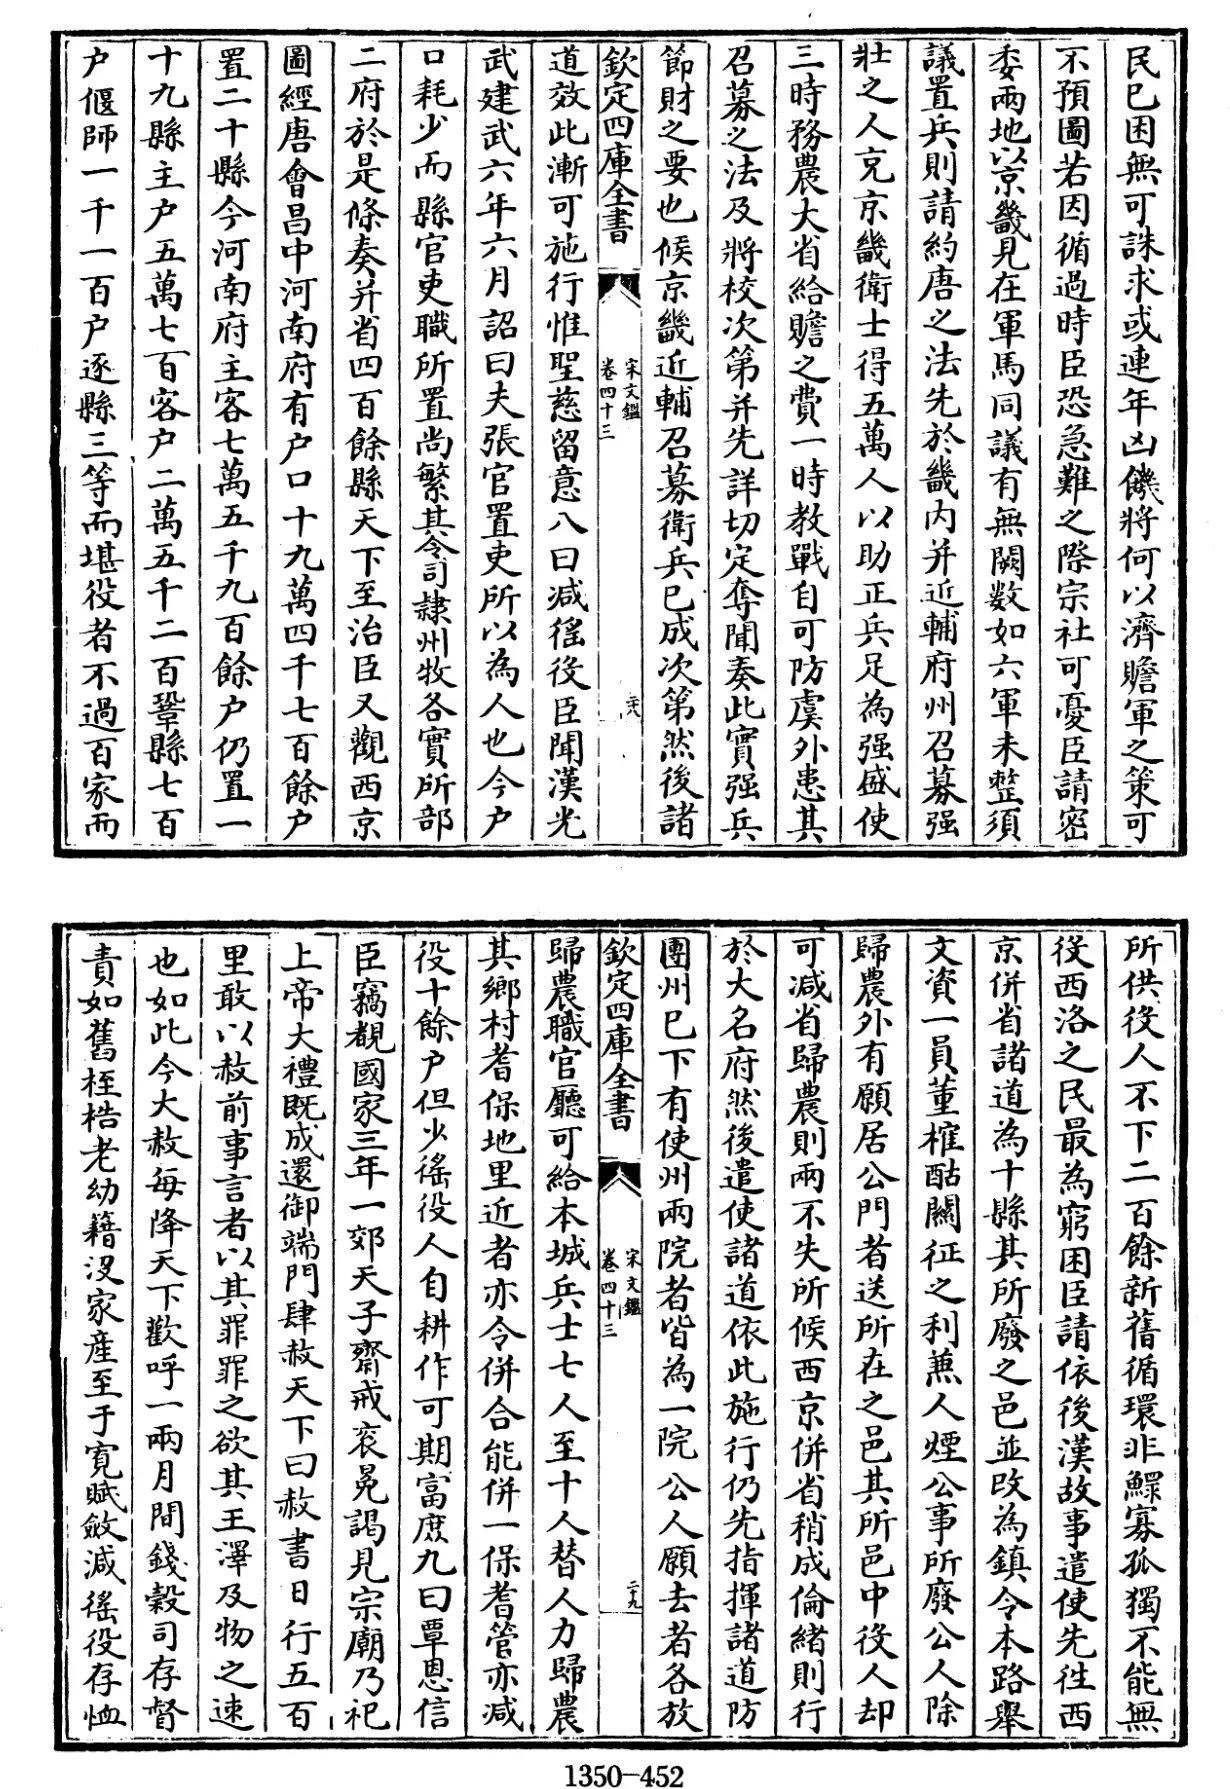 民已困無可誅求或連年凶饑將何以濟贍軍之策可
不預圖若因循過時臣恐急難之際宗社可憂臣請密
委兩地以京畿見在軍馬同議有無闕数如六軍未整須
議置兵則請約唐之法先於畿内并近輔府州召募强
壯之人充京畿衛士得五萬人以助正兵足為强盛使
三時務農大省給贍之費一時教戰自可防虞外患其
召募之法及將校次第并先詳切定奪聞奏此實强兵
節財之要也候京畿近輔召募衛兵已成次第然後諸
欽定四庫全書
宋文鑑
卷四十三
二十八
道效此漸可施行惟聖慈留意八曰減徭役臣聞漢光
武建武六年六月詔曰夫張官置吏所以為人也今户
口耗少而縣官吏職所置尚繁其令司隸州牧各實所部
二府於是條奏并省四百餘縣天下至治臣又觀西京
圖經唐會昌中河南府有户口十九萬四千七百餘户
置二十縣今河南府主客七萬五千九百餘户仍置一
十九縣主户五萬七百客户二萬五千二百鞏縣七百
户偃師一千一百户逐縣三等而堪役者不過百家而
所供役人不下二百餘新舊循環非鰥寡孤獨不能無
役西洛之民最為窮困臣請依後漢故事遣使先往西
京併省諸道為十縣其所廢之邑並改為鎮令本路舉
文資一員董榷酤關征之利兼人煙公事所廢公人除
歸農外有願居公門者送所在之邑其所邑中役人却
可減省歸農則兩不失所候西京併省稍成倫緒則行
於大名府然後遣使諸道依此施行仍先指揮諸道防
團州已下有使州兩院者皆為一院公人願去者各放
欽定四庫全書
宋文鑑
卷四十三
二十九
歸農職官廳可給本城兵士七人至十人替人力歸農
其鄉村耆保地里近者亦令併合能併一保耆管亦減
役十餘户但少徭役人自耕作可期富庶九曰覃恩信
臣竊覩國家三年一郊天子齋戒衮冕謁見宗廟乃祀
上帝大禮既成還御端門肆赦天下曰赦書日行五百
里敢以赦前事言者以其罪罪之欲其王澤及物之速
也如此今大赦每降天下歡呼一兩月間錢穀司存督
責如舊桎梏老幼籍沒家産至于寛賦斂減徭役存恤
1350-452